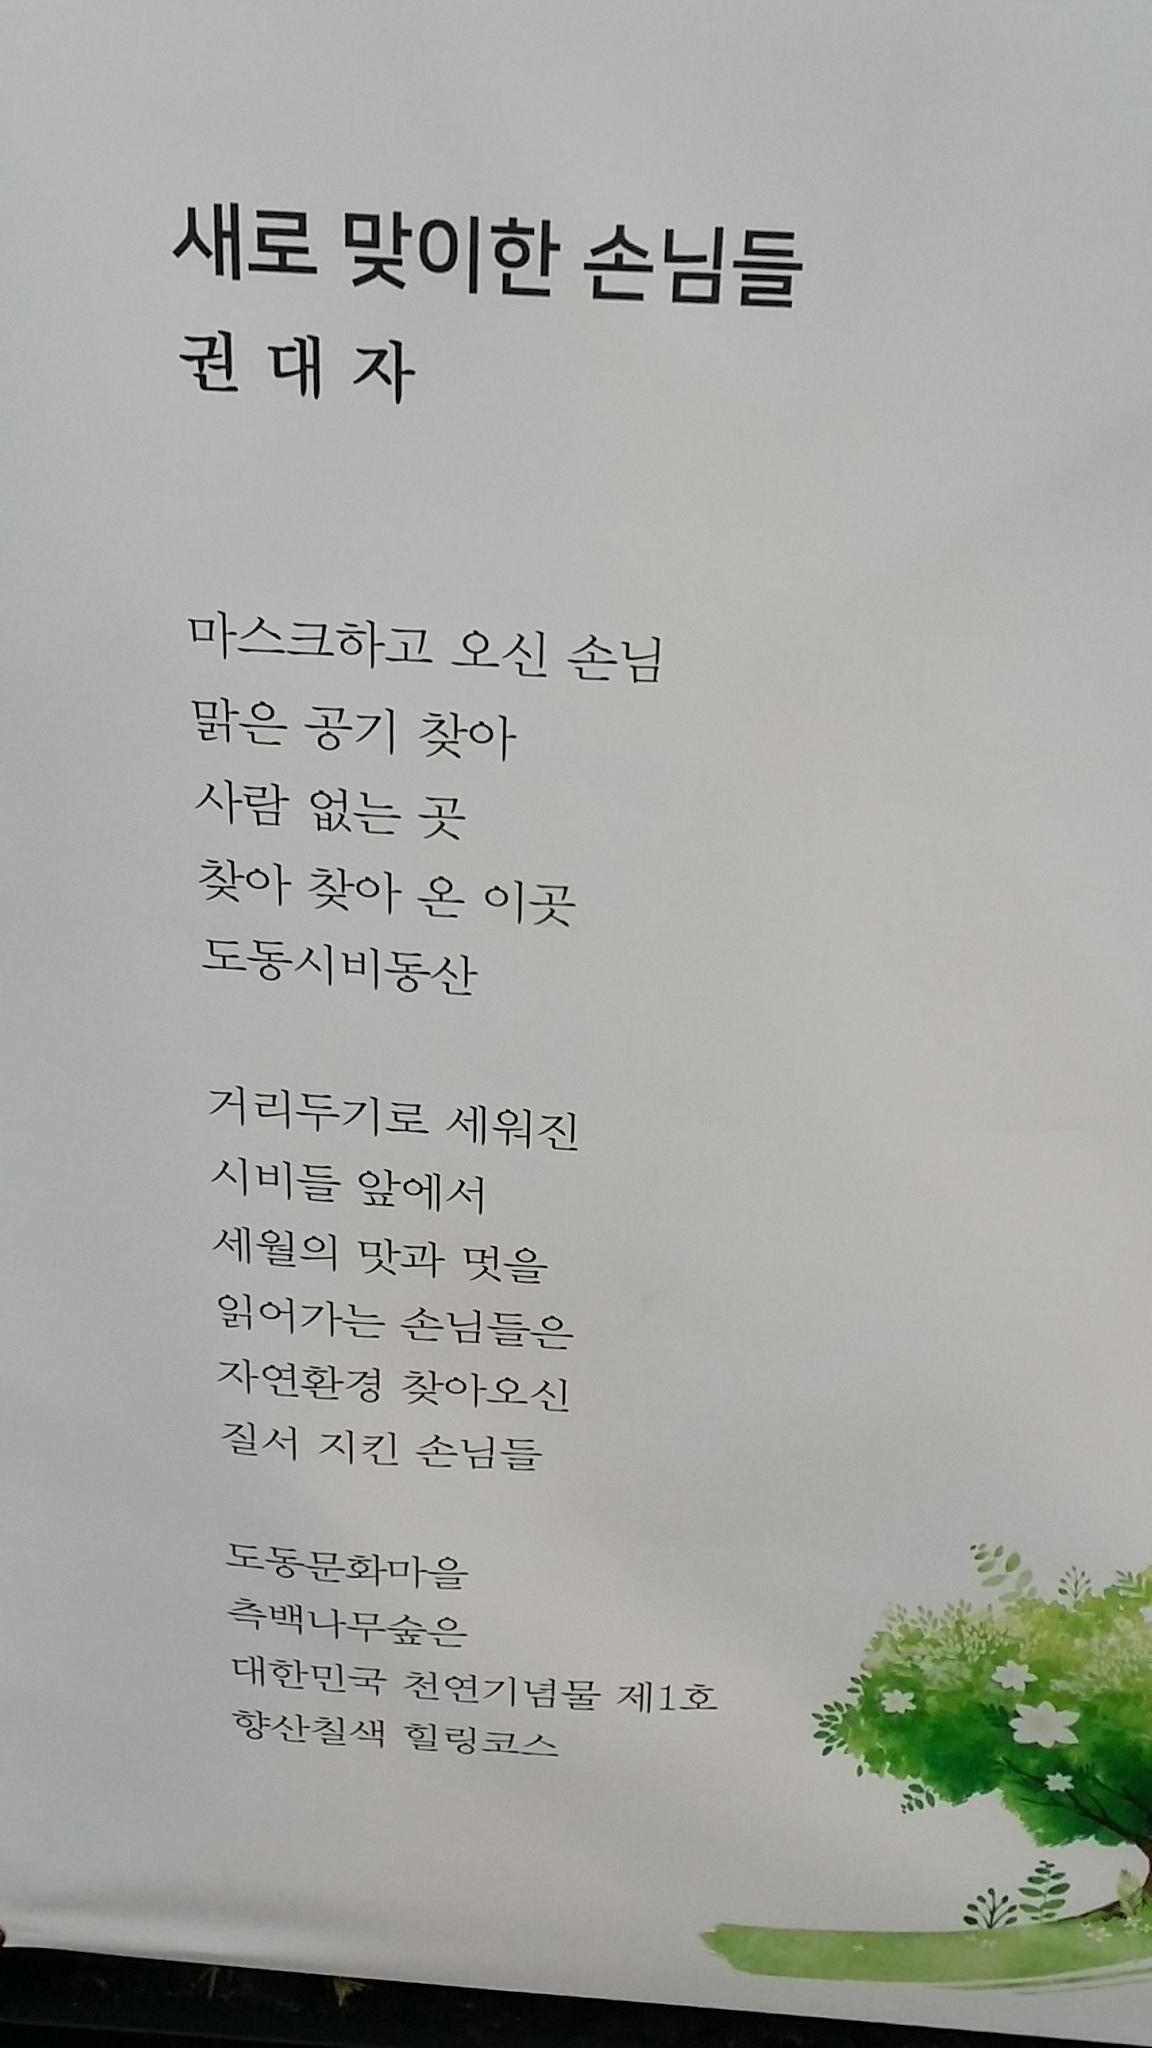 새로 맞이한 손님들
권 대 자
마스크하고 오신 손님
맑은 공기 찾아
사람 없는 곳
찾아 찾아 온 이곳
도동시비동산
거리두기로 세워진
시비들 앞에서
세월의 맛과 멋을
읽어가는 손님들은
자연환경 찾아오신
질서 지킨 손님들
도동문화마을
측백나무숲은
대한민국 천연기념물 제1호
향산칠색 힐링코스